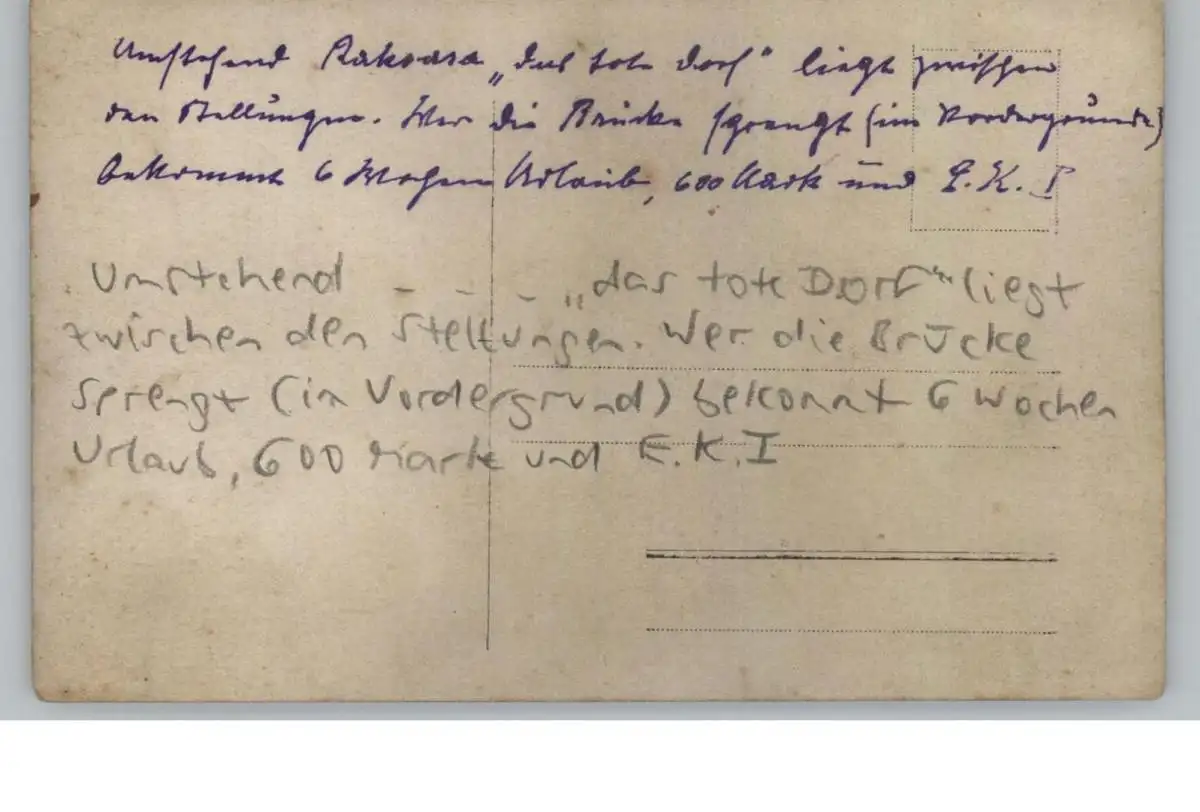 Umstehend Rakovasa „das tote Dorf“ liegt zwischen
den Stellungen. Wer die Brücke sprengt (im Vordergrunde)
bekommt 6 Wochen Urlaub, 600 Mark und E. K. I
Umstehend - - - „das tote Dorf“ liegt
zwischen den Stellungen. Wer die Brücke
sprengt (im Vordergrund) bekommt 6 Wochen
Urlaub, 600 Mark und E.K.I